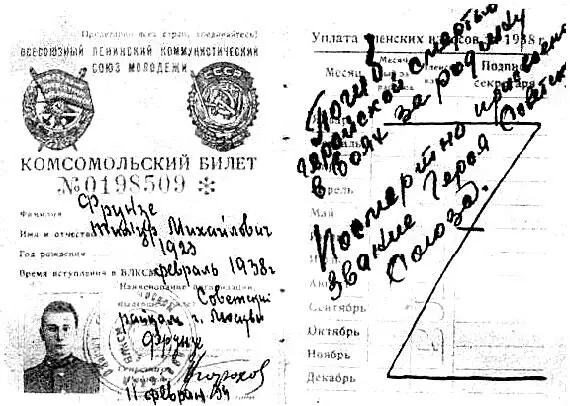 Пролетарии всех стран, соединяйтесь!
ВСЕСОЮЗНЫЙ ЛЕНИНСКИЙ КОММУНИСТИЧЕСКИЙ
СОЮЗ МОЛОДЕЖИ
СССР
КОМСОМОЛЬСКИЙ БИЛЕТ
№0198509
Фамилия Фрунзе
Имя и отчество Тимур Михайлович
Год рождения 1923
Время вступления в ВЛКСМ февраль 1938г
Наименование организации,
Советский
райком г. Москвы
Фрунзе
11 феврал
Уплата членских взносов за 1938 г.
Месяц
Подпись
секретаря
Апрель
Май
Сентябрь
Октябрь
Ноябрь
Декабрь
Погиб
геройской смертью
в боях за родину
Посмертно присвоено
звание Героя Советск
Союза.